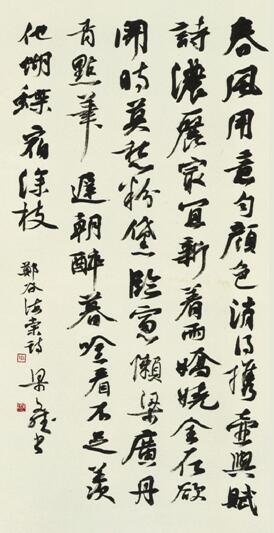 春風用意勻顏色消得携壺與賦
詩濃麗最宜新着雨嬌嬈全在欲
開時莫愁粉黛臨窗懶梁廣丹
青點筆遲朝醉暮吟看不足羨
他蝴蝶宿深枝
鄭谷海棠詩
書